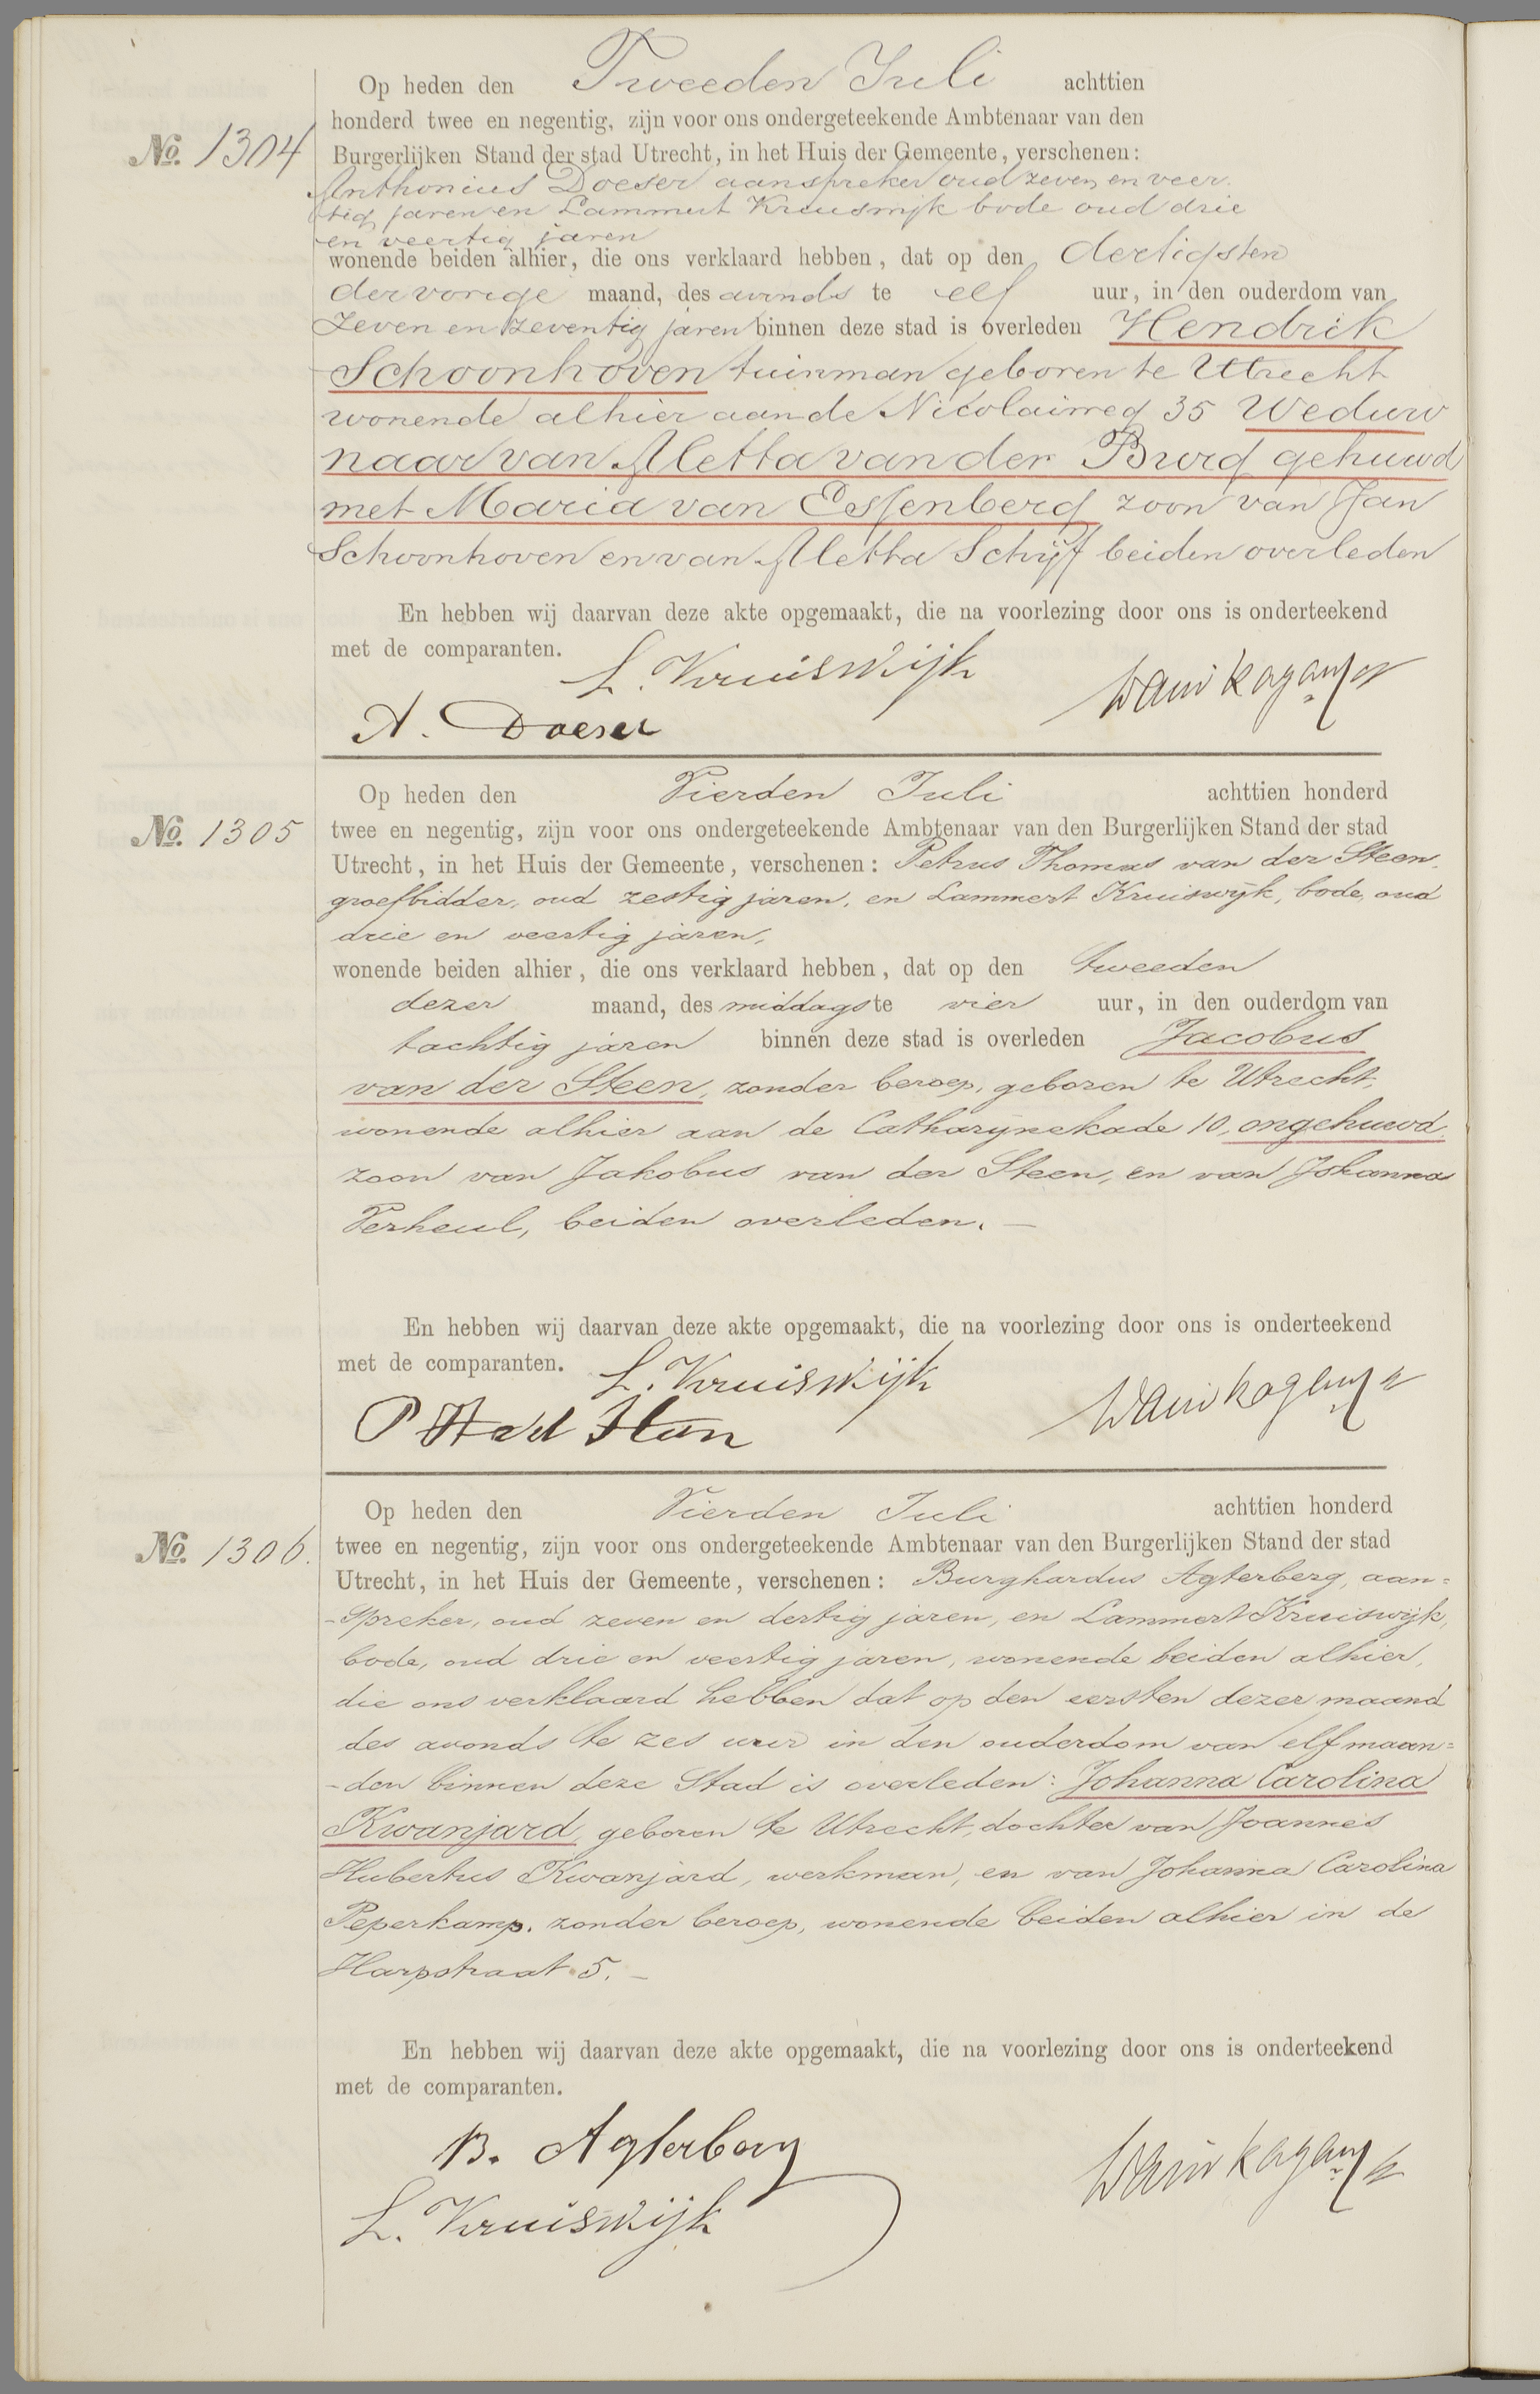 Op heden den Tweeden Juli achttien
honderd twee en negentig, zijn voor ons ondergeteekende Ambtenaar van den
No. 1304 Burgerlijken Stand der stad Utrecht, in het Huis der Gemeente, verschenen:
Anthonius Doeser aanspreker oud zeven en veer
tig jaren en Lammert Kruiswijk bode oud drie
en veertig jaren
wonende beiden alhier, die ons verklaard hebben, dat op den dertigsten
der vorige maand, des avonds te elf uur, in den ouderdom van
Zeven en zeventig jaren binnen deze stad is overleden Hendrik
Schoonhoven tuinman geboren te Utrecht
wonende alhier aan de Nicolaiweg 35 Weduw
naar van Aletta van der Burg gehuwd
met Maria van Essenberg zoon van Jan
Schoonhoven en van Aletta Schijf beiden overleden
En hebben wij daarvan deze akte opgemaakt, die na voorlezing door ons is onderteekend
met de comparanten.
L. Kruiswijk
A. Doeser
Op heden den Vierden Juli achttien honderd
No. 1305 twee en negentig, zijn voor ons ondergeteekende Ambtenaar van den Burgerlijken Stand der stad
Utrecht, in het Huis der Gemeente, verschenen: Petrus Thomas van der Steen,
groefbidder, oud zestig jaren, en Lammert Kruiswijk, bode, oud
drie en veertig jaren,
wonende beiden alhier, die ons verklaard hebben, dat op den tweeden
dezer maand, des middags te vier uur, in den ouderdom van
tachtig jaren binnen deze stad is overleden Jacobus
van der Steen, zonder beroep, geboren te Utrecht,
wonende alhier aan de Catharijnekade 10, ongehuwd,
zoon van Jakobus van der Steen, en van Johanna
Verheul, beiden overleden. —
En hebben wij daarvan deze akte opgemaakt, die na voorlezing door ons is onderteekend
met de comparanten.
L. Kruiswijk
Op heden den Vierden Juli achttien honderd
No. 1306. twee en negentig, zijn voor ons ondergeteekende Ambtenaar van den Burgerlijken Stand der stad
Utrecht, in het Huis der Gemeente, verschenen: Burghardus Agterberg, aan=
-spreker, oud zeven en dertig jaren, en Lammert Kruiswijk,
bode, oud drie en veertig jaren, wonende beiden alhier,
die ons verklaard hebben dat op den eersten dezer maand
des avonds te zes uur in den ouderdom van elf maan=
-den binnen deze Stad is overleden: Johanna Carolina
Kwanjard, geboren te Utrecht, dochter van Joannes
Hubertus Kwanjard, werkman, en van Johanna Carolina
Peperkamp, zonder beroep, wonende beiden alhier in de
Harpstraat 5. —
En hebben wij daarvan deze akte opgemaakt, die na voorlezing door ons is onderteekend
met de comparanten.
B. Agterberg
L. Kruiswijk